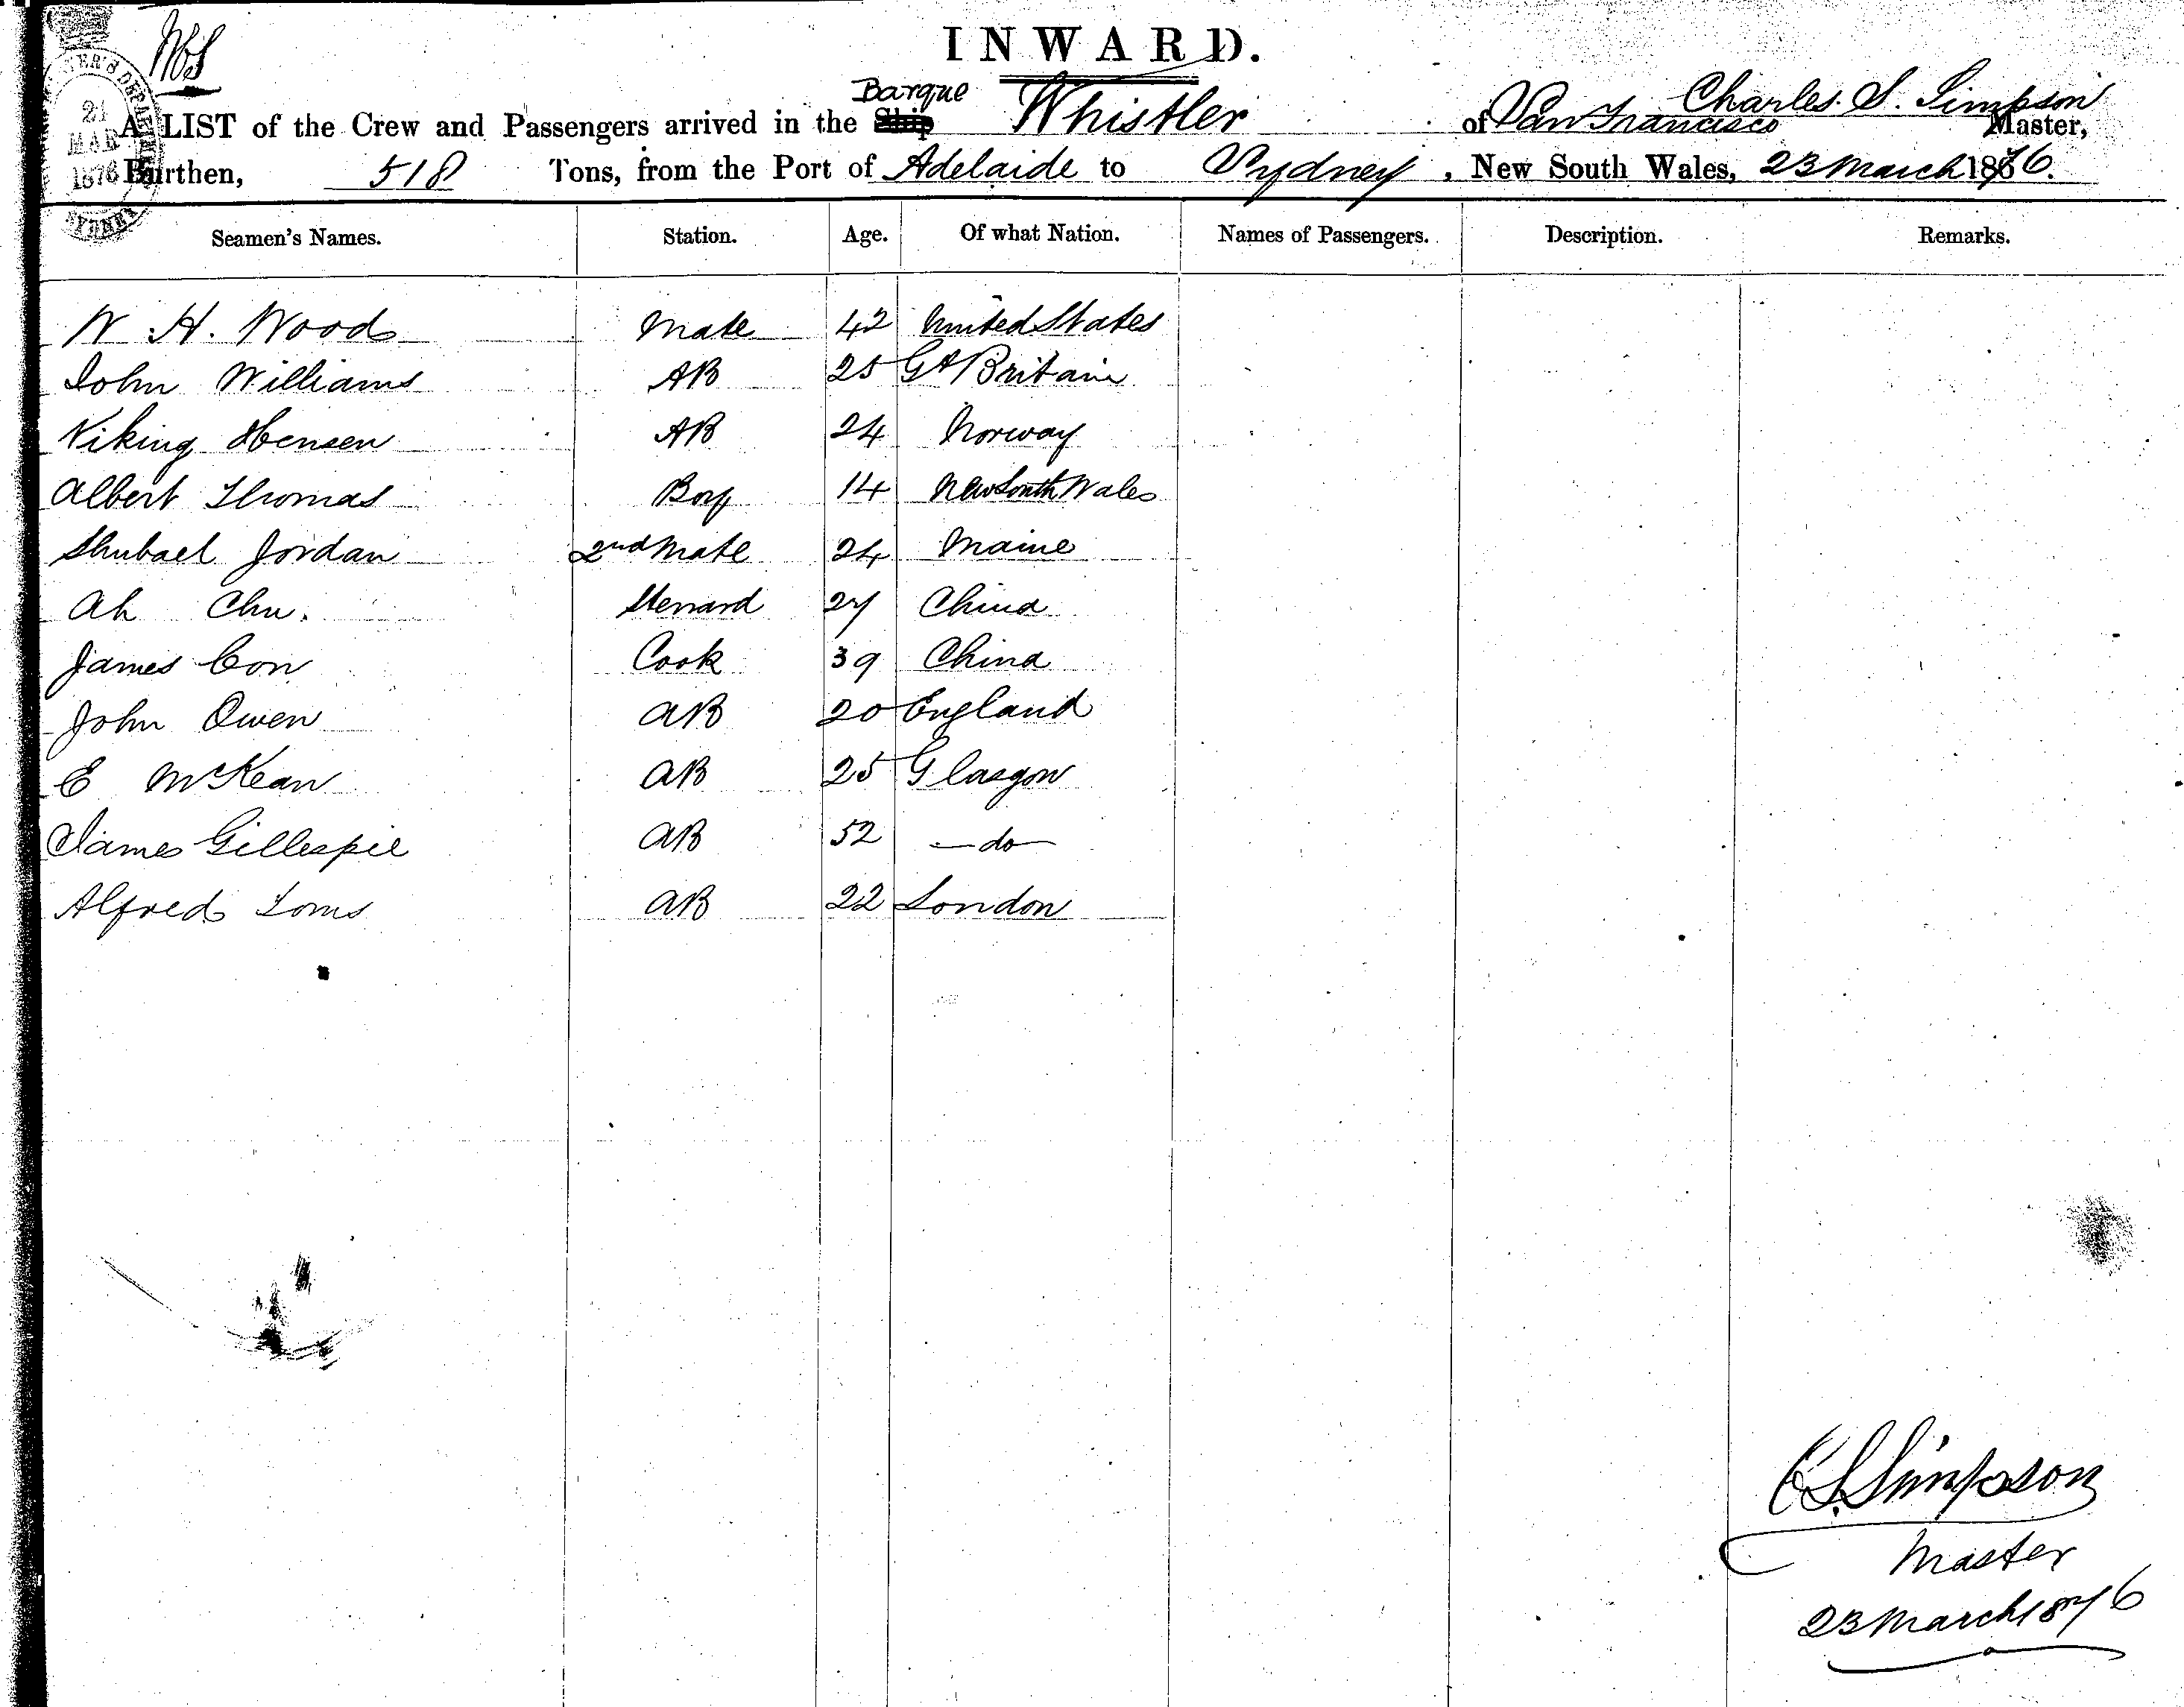 INWARD.
Barque
Charles. S. Simpson
A LIST of the Crew and Passengers arrived in the Ship Whistler of San Francisco Master,
Burthen, 518 Tons, from the Port of Adelaide to Sydney, New South Wales, 23 March 1876.
Seamen's Names. Station. Age. Of what Nation. Names of Passengers. Description. Remarks.
W. H. Woods Mate 42 United States
John Williams AB 25 Gt Britain
Viking Hensen AB 24 Norway
Albert Thomas Boy 14 New South Wales
Shubael Jordan 2nd Mate 24 Maine
Ah Chu. Steward 27 China
James Con Cook 39 China
John Owen AB 20 England
E McKean AB 25 Glasgow
James Gillespie AB 52 — do —
Alfred Toms AB 22 London
C.S. Simpson
Master
23 March 1876